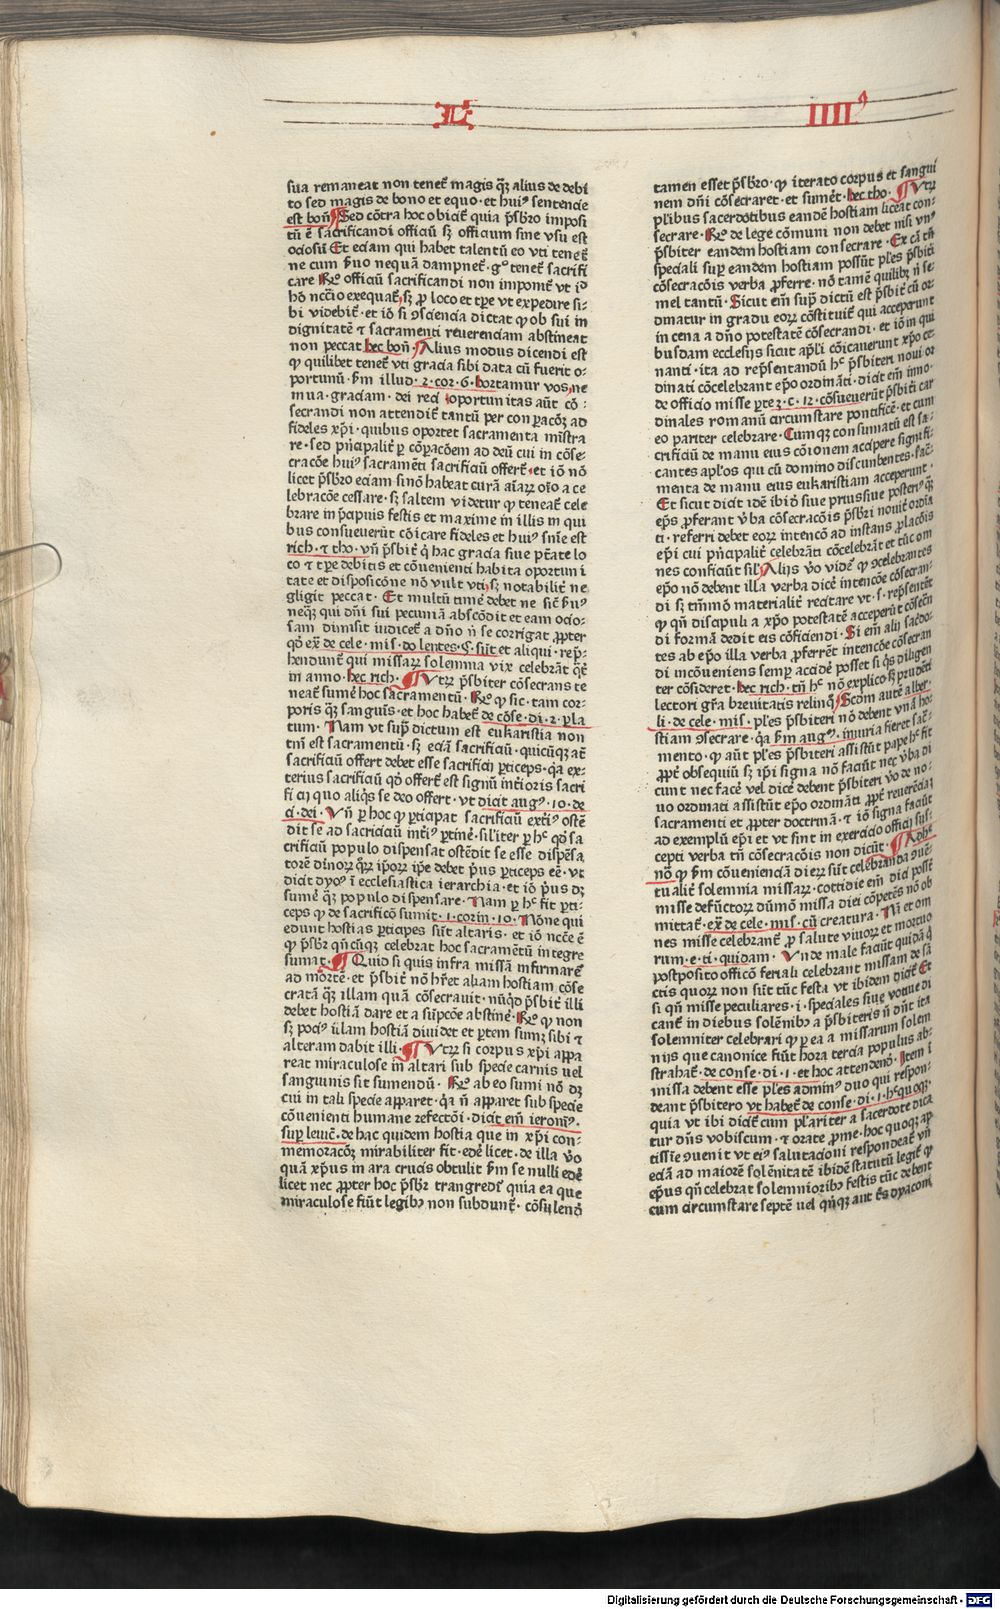 L IIII
sua remaneat non tenet᷑ magis q̄ȝ alius de debi
to sed magis de bono et equo · et hui⁹ sentencie
est boñ ¶ Sed cōtra hoc obicit᷑ quia p̄sbr̄o imposi
tū ē sacrificandi officiū sȝ officium sine vsu est
ociosū Et eciam qui habet talentū eo vti tenet᷑
ne cum ẜuo nequā dampnet᷑ · g° tenet᷑ sacrifi
care Rō officiū sacrificandi non imponit᷑ vt id
hō nccīo exequat᷑ sȝ ꝓ loco et tꝑe vt expedire si-
bi videbit᷑ · et iō si ꝯsciencia dictat ꝙ ob sui in
dignitatē ⁊ sacramenti reuerenciam abstineat
non peccat hec boñ · ¶ Alius modus dicendi est
ꝙ quilibet tenet᷑ vti gracia sibi data cū fuerit o-
portunū · ẜm illud · 2 · cor · 6 · hortamur vos ne
oportunitas aūt cō-
secrandi non attendit᷑ tantū per conꝑacōȝ ad
fideles xp̄i · quibus oportet sacramenta mīstra
re · sed pn̄cipalit᷑ ꝑ cōꝑacōem ad deū cui in cōse-
cracōe hui⁹ sacramēti sacrificiū offert᷑ · et iō nō
licet p̄sbr̄o eciam si nō habeat curā aīarꝝ oīo a ce
lebracōe cessare · sȝ saltem videtur ꝙ teneat᷑ cele
brare in p̄cipuis festis et maxime in illis in qui
bus consueuerūt cōicare fideles et hui⁹ snīe est
rich · ⁊ tho · vn̄ p̄sbit᷑ q̇ hac gracia siue ptāte lo
co ⁊ tꝑe debitis et cōuenienti habita oportuni
tate et disposicōne nō vult vti sȝ notabilit᷑ ne
gligit peccat · Et multū time᷑ debet ne sic᷑ ẜu⁹
neqȝ qui dn̄i sui pecuniā abscōdit et eam ocio-
sam dimisit iudicet᷑ a dn̄o n̄ se corrigat ꝓpter
qd᷑ ex̄ de cele · mis · dolentes · § · sūt et aliqui · rep̄-
hendunt᷑ qui missarꝝ solemnia vix celebrāt q̄t᷑
in anno · hec rich · ¶ Vtꝝ p̄sbiter cōsecrans te
neat᷑ sume᷑ hoc sacramentū · Rō ꝙ sic · tam cor-
poris q̄ȝ sanguīs · et hoc habet᷑ de cōse · di · 2 · pla
tum · Nam vt sup᷑ dictum est eukaristia non
tm̄ est sacramentū · sȝ eciā sacrificiū · quicūqȝ at᷑
sacrificiū offert debet esse sacrificij ꝑticeps · q̇a ex-
terius sacrificiū qd᷑ offert᷑ est signū int᷑ioris sacri
ficij quo aliq̇s se deo offert · vt dicit aug⁹ · 10 · de
ci · dei · Vn̄ ꝑ hoc ꝙ ꝑticipat sacrificiū ext᷑i⁹ ostē
dit se ad sacriciciū int᷑i⁹ ꝑtine᷑ · silīter ꝑ hͨ qd᷑ sa
crificiū populo dispensat ostēdit se esse dispēsa
torē diuorꝝ q̄rꝝ ip̄orꝝ ip̄e debet p̄us ꝑticeps eē · vt
dicit dyo⁹ ī ecclesiastica ierarchia · et iō p̄us dȝ
sume᷑ q̄ȝ populo dispensare · Nam ꝑ hͨ fit ꝑti-
ceps ꝙ de sacrificō sumit · 1 · corin · 10 · Nōne qui
edunt hostias ꝑticipes sūt altaris · et iō nccē ē
ꝙ p̄sbr̄ qn̄cūqȝ celebrat hoc sacramētū integre
sumat · ¶ Quid si quis infra missā infirmaret᷑
ad mortē · et p̄sbit᷑ nō hr̄et aliam hostiam cōse
cratā q̄ȝ illam quā cōsecrauit · nūq̇d p̄sbit᷑ illi
debet hostiā dare et a sūpcōe abstine᷑ · Rō ꝙ non
sȝ poci⁹ illam hostiā diuidet et ꝑtem sumȝ sibi ⁊
alteram dabit illi · ¶ Vtꝝ si corpus xp̄i appa
reat miraculose in altari sub specie carnis uel
sanguinis sit sumendū · Rō ab eo sumi nō dȝ
cui in tali specie apparet · q̇a n̄ apparet sub specie
cōuenienti humane refectōi · dicit em̄ ieronī⁹ ·
suꝑ leuit᷑ · de hac quidem hostia que in xp̄i con-
memoracōȝ mirabiliter fit · ede᷑ licet · de illa v᷑o
quā xp̄us in ara crucis obtulit ẜm se nulli ede᷑
licet nec ꝓpter hoc p̄sbr̄ trangredit᷑ quia ea que
miraculose fiūt legibȝ non subdunt᷑ · cōsulend᷑
tamen esset p̄sbr̄o · ꝙ iterato corpus et sangui
nem dn̄i cōsecraret · et sume᷑t · hec tho · ¶ Vtꝝ
pl̄ibus sacerdotibus eandē hostiam liceat con-
secrare · Rō de lege cōmuni non debet nisi vn⁹
p̄sbiter eandem hostiam consecrare · Ex cā tn̄
speciali suꝑ eandem hostiam possūt pl̄es p̄sbit᷑i
cōsecracōis verba ꝓferre · nō tamē quilibȝ n̄ se
mel tantū · Sicut em̄ sup᷑ dictū est p̄sbit᷑ cū or-
dinatur in gradu eorꝝ cōstituit᷑ qui acceperunt
in cena a dn̄o potestatē cōsecrandi · et iō in qui
busdam ecclesijs sicut ap̄li cōicauerunt xp̄o ce
nanti · ita ad rep̄sentandū hͨ p̄sbiteri noui or
dinati cōcelebrant ep̄o ordināti · dicit em̄ inno ·
de officio misse ꝑte 3 · c · 12 · cōsueuerūt p̄sbit᷑i car
dinales romanū circumstare pontificē · et cum
eo pariter celebrare · Cumqȝ consumatū est sa-
crificiū de manu eius cōionem accipere signifi-
cantes apl̄os qui cū domino discumbentes · sac᷑-
menta de manu eius eukaristiam acceperunt ·
Et sicut dicit idē ibid᷑ siue prius siue posteri⁹ q̄ȝ
ep̄s ꝓferant v᷑ba cōsecracōis p̄sbr̄i nouit᷑ ordia
ti · referri debet eorꝝ intencō ad instans ꝓlacōis
ep̄i cui pn̄cipalit᷑ celebrāti cōcelebrāt et tūc om
nes conficiūt sil᷑ ¶ Alijs v᷑o vide᷑ ꝙ ꝯcelebrantes
ep̄o nō debent illa verba dice᷑ intencōe cōsecran-
di sȝ tm̄mō materialit᷑ recitare vt · s · rep̄sentēt
ꝙ qn̄ discipuli a xp̄o potestatē acceperūt cōsecn̄
di formā dedit eis cōficiendi · Si em̄ alij sac᷑do-
tes ab ep̄o illa verba ꝓferrēt intencōe cōsecran
di incōueniens semꝑ accide᷑ posset si q̇s diligen
ter cōsideret · hec rich · tn̄ hͨ nō explico sȝ prudēti
lectori gr̄a breuitatis relinq̄ ¶ Scdm autē alber ·
li · de cele · mis · pl̄es p̄sbiteri nō debent vnā ho-
stiam ꝯsecrare · q̇a ẜm aug⁹ · iniuria fieret sac᷑-
mento · ꝙ aūt pl̄es p̄sbiteri assistūt pape hͨ fit
ꝓpt᷑ obsequiū sȝ ip̄i signa nō faciūt nec v᷑ba di
cunt nec face᷑ vel dice᷑ debent p̄sbiteri v᷑o de no-
uo ordinati assistūt ep̄o ordināti ꝓpt᷑ reuerēciaȝ
sacramenti et ꝓpter doctrinā · ⁊ iō signa faciūt
ad exemplū ep̄i et vt sint in exercicio officij sus-
cepti verba tn̄ cōsecracōis non dicūt · ¶ Adhͨ
nō ꝙ ẜm cōuenienciā dierꝝ sūt celebranda ꝯue᷑-
tualit᷑ solemnia missarꝝ · cottidie em̄ dici posset᷑
misse defūctorꝝ dūmō missa diei cōpetēs nō ob
mittat᷑ · ex̄ de cele · mis · cū creatura · Nā et om
nes misse celebrant᷑ ꝓ salute viuorꝝ et mortuo
rum · e · ti · quidam · Vnde male faciūt quidā q̇
postposito officō feriali celebrant missam de sā
ctis quorꝝ non sūt tūc festa vt ibidem dicit᷑ Et
si qn̄ misse peculiares · i · speciales siue votiue di
cant᷑ in diebus solēnibȝ a p̄sbiteris n̄ dn̄t ita
solemniter celebrari ꝙ ꝑ ea a missarum solem
nijs que canonice fiūt hora tercia populus ab-
strahat᷑ · de conse · di · 1 · et hoc attendend᷑ · Item ī
missa debent esse pl̄es ad min⁹ duo qui respon-
deant p̄sbitero vt habet᷑ de conse · di · 1 · hͨ quoqȝ ·
quia vt ibi dicit᷑ cum pl̄ariter a sacerdote dica
tur dn̄s vobiscum · ⁊ orate ꝓ me · hoc quoqȝ ap
tissīe ꝯuenit vt ei⁹ salutacioni respondeat᷑ vn̄
eciā ad maiorē solēnitatē ibidē statutū legit᷑ ꝙ
ep̄us qn̄ celebrat solemnioribȝ festis tūc debent
cum circumstare septē uel qn̄qȝ aut t᷑s dyaconi
Digitalisierung gefördert durch die Deutsche Forschungsgemeinschaft - DFG